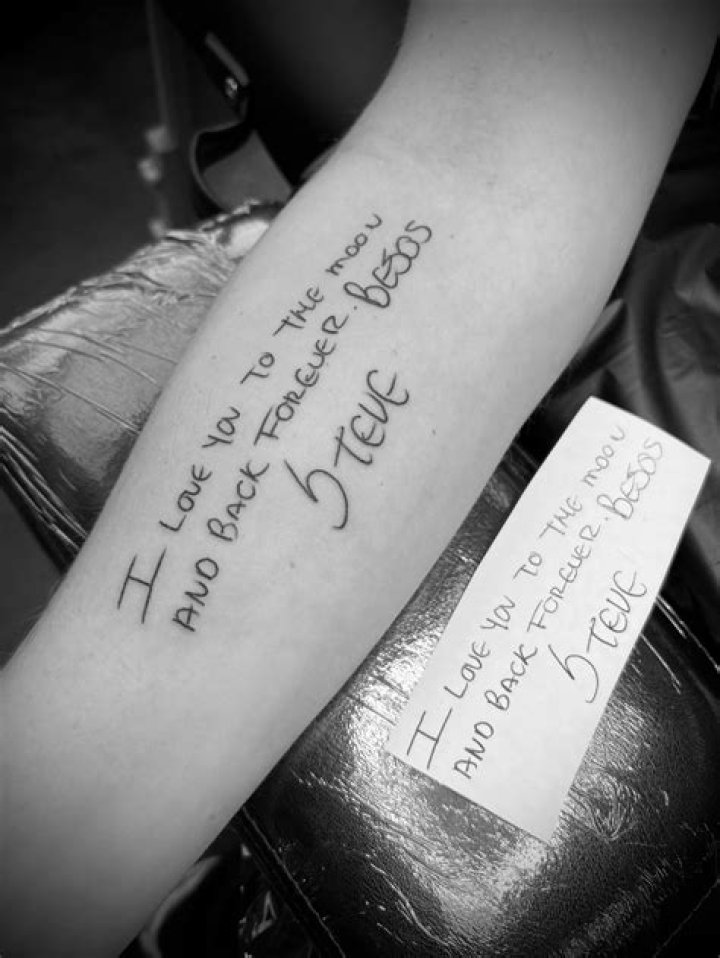 I LOVE YOU TO THE MOON
AND BACK FOREVER. BESOS
STEVE
I LOVE YOU TO THE MOON
AND BACK FOREVER. BESOS
STEVE